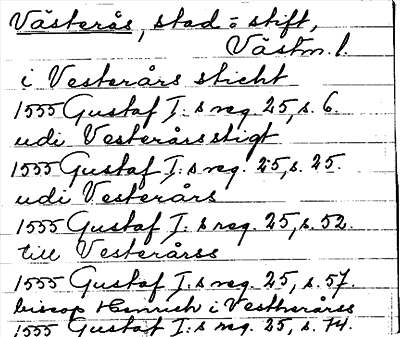 Västerås, stad = stift,
Västm. l.
i Vesterårs sticht
1555 Gustaf I:s reg. 25, s. 6.
udi Vesterårsstigt
1555 Gustaf I:s reg. 25, s. 25.
udi Vesterårs
1555 Gustaf I:s reg. 25, s. 52.
till Vesterårss
1555 Gustaf I:s reg. 25, s. 57.
biscop Henrich i Vestherårss
1555 Gustaf I:s reg. 25, s. 74.